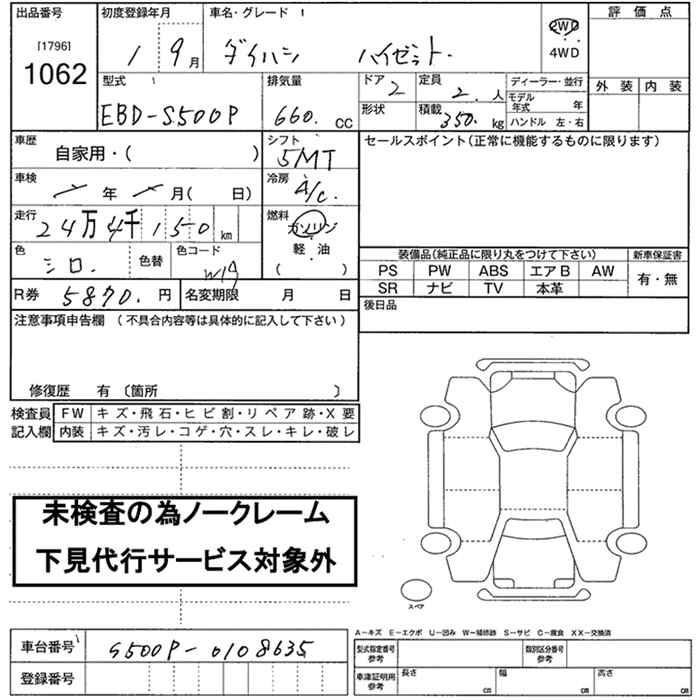 出品番号 初度登録年月 車名・グレード 評価点
[1796]
1062
1 9月 ダイハツ ハイゼット.
2WD
4WD
型式 排気量 ドア 定員 ディーラー・並行 外装 内装
EBD-S500P 660. cc 2 2. 人 モデル年式 年
形状 積載 350. kg ハンドル 左・右
車歴 シフト セールスポイント(正常に機能するものに限ります)
自家用・( ) 5MT
車検 冷房
年 月( 日) A/C.
走行 燃料
24万4千150 km ガソリン
軽・油
( )
色 シロ. 色替 色コード W19
装備品(純正品に限り丸をつけて下さい) 新車保証書
PS PW ABS エアB AW 有・無
SR ナビ TV 本革
R券 5870. 円 名変期限 月 日
後日品
注意事項申告欄 (不具合内容等は具体的に記入して下さい)
修復歴 有 〔箇所 〕
検査員 FW キズ・飛石・ヒビ割・リペア跡・X要
記入欄 内装 キズ・汚レ・コゲ・穴・スレ・キレ・破レ
未検査の為ノークレーム
下見代行サービス対象外
スペア
A-キズ E-エクボ U-凹み W-補修跡 S-サビ C-腐食 XX-交換済
車台番号 S500P-0108635
型式指定番号 参考 類別区分番号 参考
登録番号
車庫証明用 参考 長さ cm 幅 cm 高さ cm